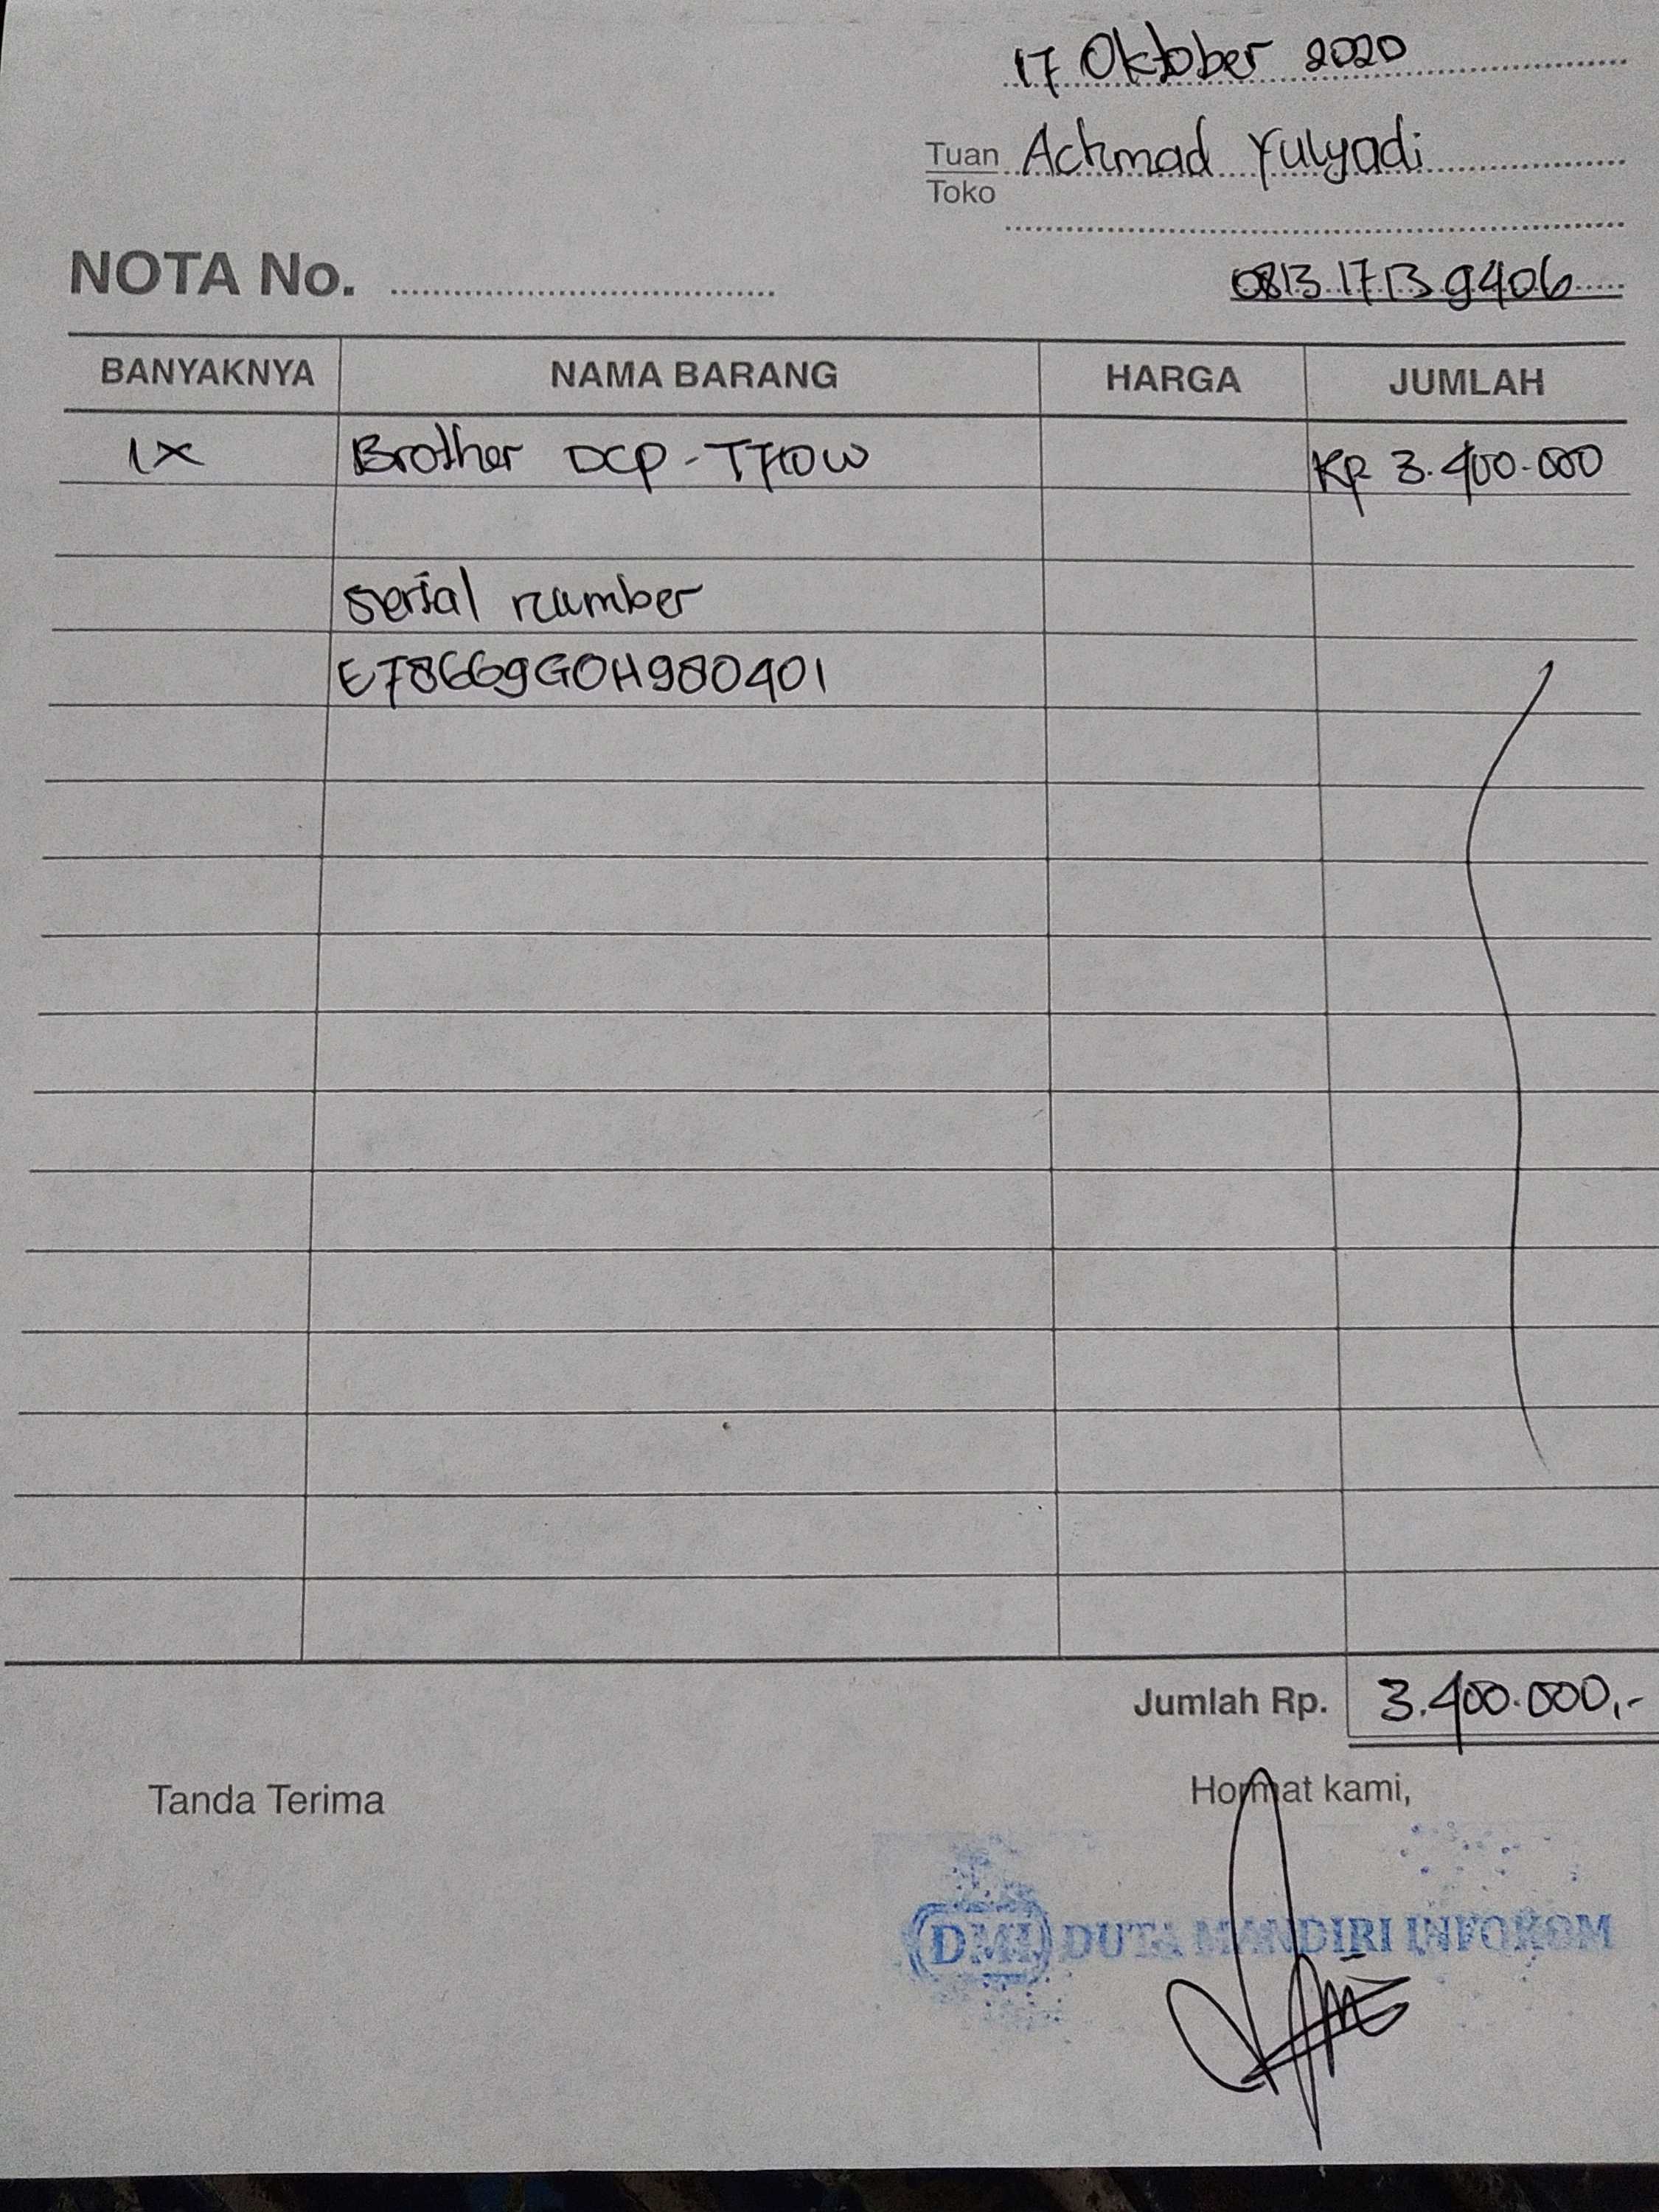 17 Oktober 2020
Tuan Achmad Yulyadi
Toko
NOTA No.
0813 1713 9406
BANYAKNYA NAMA BARANG HARGA JUMLAH
1x Brother DCP-T710W Rp 3.400.000
serial number
E78669G0H980401
Jumlah Rp. 3.400.000,-
Tanda Terima Hormat kami,
DMI DUTA MANDIRI INFOKOM